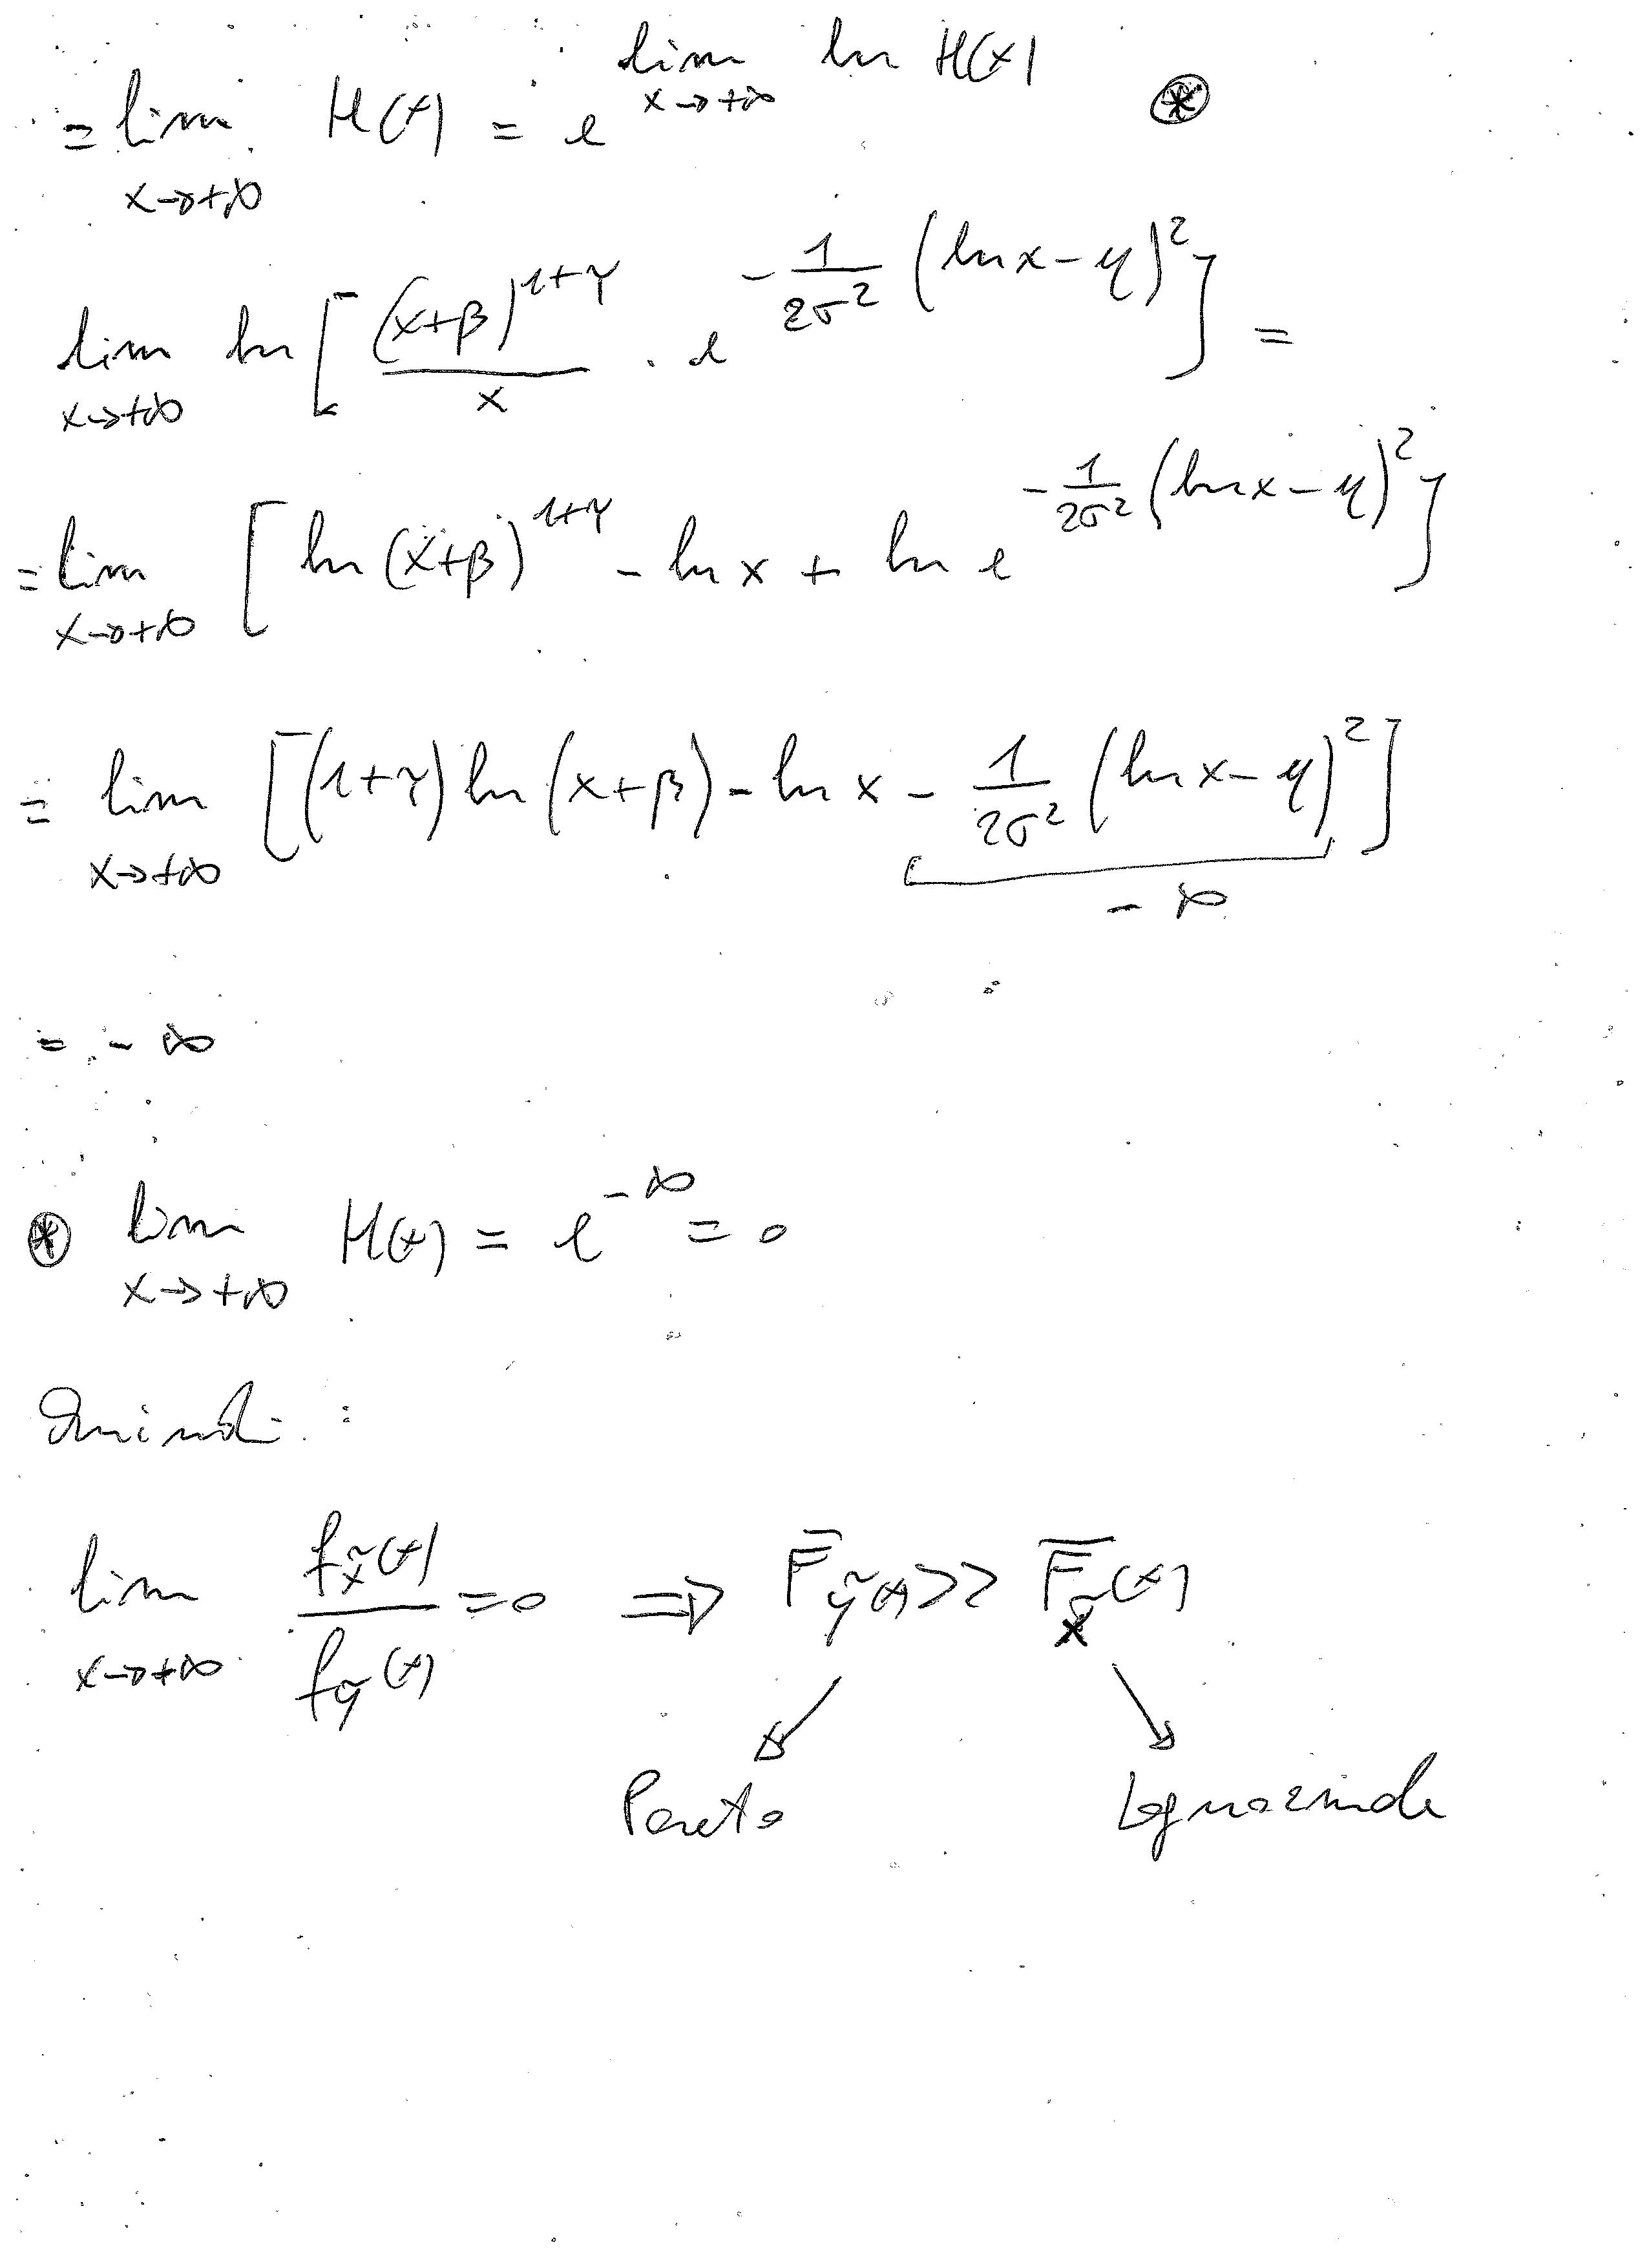 = lim_{x→+∞} H(x) = e^{lim_{x→+∞} ln H(x)} ⊛
lim_{x→+∞} ln [ (x+β)^{1+γ} / x · e^{-1/(2σ²) (ln x - η)²} ] =
= lim_{x→+∞} [ ln (x+β)^{1+γ} - ln x + ln e^{-1/(2σ²) (ln x - η)²} ]
= lim_{x→+∞} [ (1+γ) ln (x+β) - ln x - 1/(2σ²) (ln x - η)² ]
- ∞
= - ∞
⊛ lim_{x→+∞} H(x) = e^{-∞} = 0
Quindi :
lim_{x→+∞} f_x̃(x) / f_ỹ(x) = 0 ⇒ F̄_ỹ(x) >> F̄_x̃(x)
Pareto Lognormale